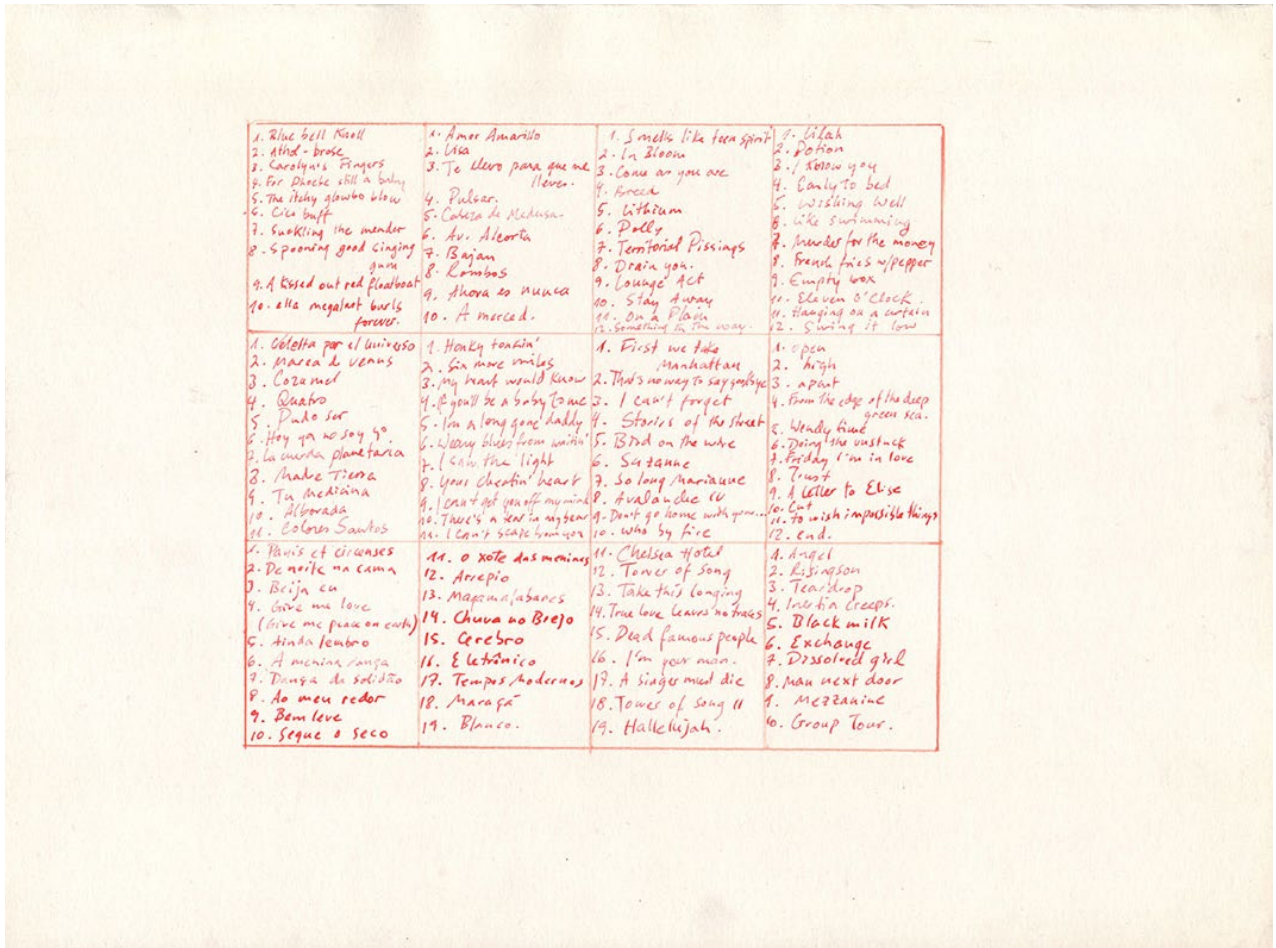 1. Blue bell Knoll
2. Athol-brose
3. Carolyn's Fingers
4. For Phoebe still a baby
5. The itchy glowbo blow
6. Cico buff
7. Suckling the mender
8. Spooning good singing
gum
9. A kissed out red floatboat
10. ella megalast burls
forever.
1. Amor Amarillo
2. Lisa
3. Te llevo para que me
lleves.
4. Pulsar.
5. Cabeza de Medusa.
6. Av. Alcorta
7. Bajan
8. Rombos
9. Ahora es nunca
10. A merced.
1. Smells like teen spirit
2. In Bloom
3. Come as you are
4. Breed
5. Lithium
6. Polly
7. Territorial Pissings
8. Drain you.
9. Lounge Act
10. Stay Away
11. On a Plain
12. Something in the way.
1. Lilah
2. Potion
3. I know you
4. Early to bed
5. Wishing Well
6. Like swimming.
7. Murder for the money
8. French fries w/pepper
9. Empty box
10. Eleven O'Clock.
11. Hanging on a curtain
12. Swing it low
1. Vuelta por el universo
2. Marea de Venus
3. Cozumel
4. Quatro
5. Pudo ser
6. Hoy ya no soy yo.
7. La planetaria
8. Madre Tierra
9. Tu Medicina
10. Alborada
11. Colores Santos
1. Honky tonkin'
2. Six more miles
3. My heart would know
4. If you'll be a baby to me
5. I'm a long gone daddy
6. Weary blues from waitin'
7. I saw the light
8. Your cheatin' heart
9. I can't get you off my mind
10. There's a tear in my bear
11. I can't scape from you
1. First we take
Manhattan
2. That's no way to say goodbye
3. I can't forget
4. Stories of the street
5. Bird on the wire
6. Suzanne
7. So long Marianne
8. Avalanche IV
9. Don't go home with your...
10. who by fire
1. open
2. high
3. apart
4. From the edge of the deep
green sea.
5. Wendy time
6. Doing the unstuck
7. Friday I'm in love
8. Trust
9. A Letter to Elise
10. Cut
11. to wish impossible things
12. end.
1. Panis et circenses
2. De noite na cama
3. Beija eu
4. Give me love
(Give me peace on earth)
5. Ainda lembro
6. A menina dança
7. Dança da solidão
8. Ao meu redor
9. Bem leve
10. Segue o seco
11. O xote das meninas
12. Arrepio
13. Magamalabares
14. Chuva no Brejo
15. Cerebro
16. Eletrônico
17. Tempos Modernos
18. Maraçá
19. Blanco.
11. Chelsea Hotel
12. Tower of Song
13. Take this longing
14. True love leaves no traces
15. Dead famous people
16. I'm your man.
17. A singer must die
18. Tower of song II
19. Hallelujah.
1. Angel
2. Risingson
3. Teardrop
4. Inertia Creeps.
5. Black milk
6. Exchange
7. Dissolved girl
8. Man next door
9. Mezzanine
10. Group Four.